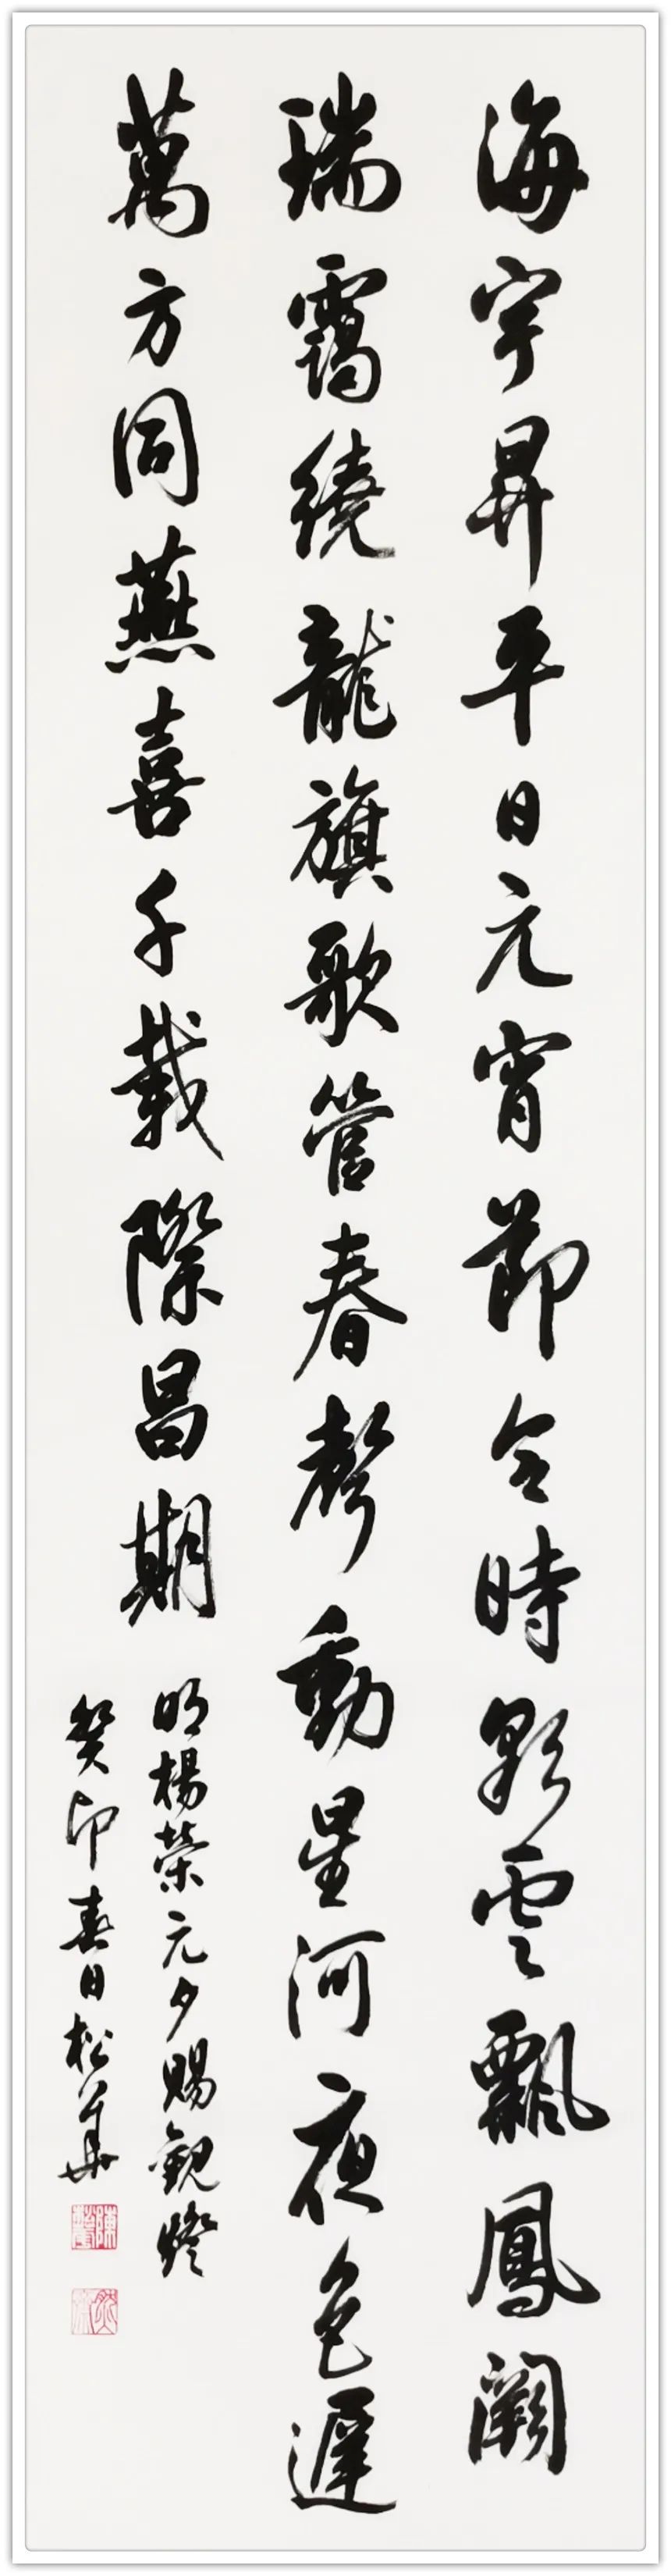 海宇昇平日元宵節令時彩雲飄鳳闕
瑞靄繞龍旗歌管春聲動星河夜色遲
萬方同燕喜千載際昌期
明楊榮元夕賜觀燈
癸卯春日松華